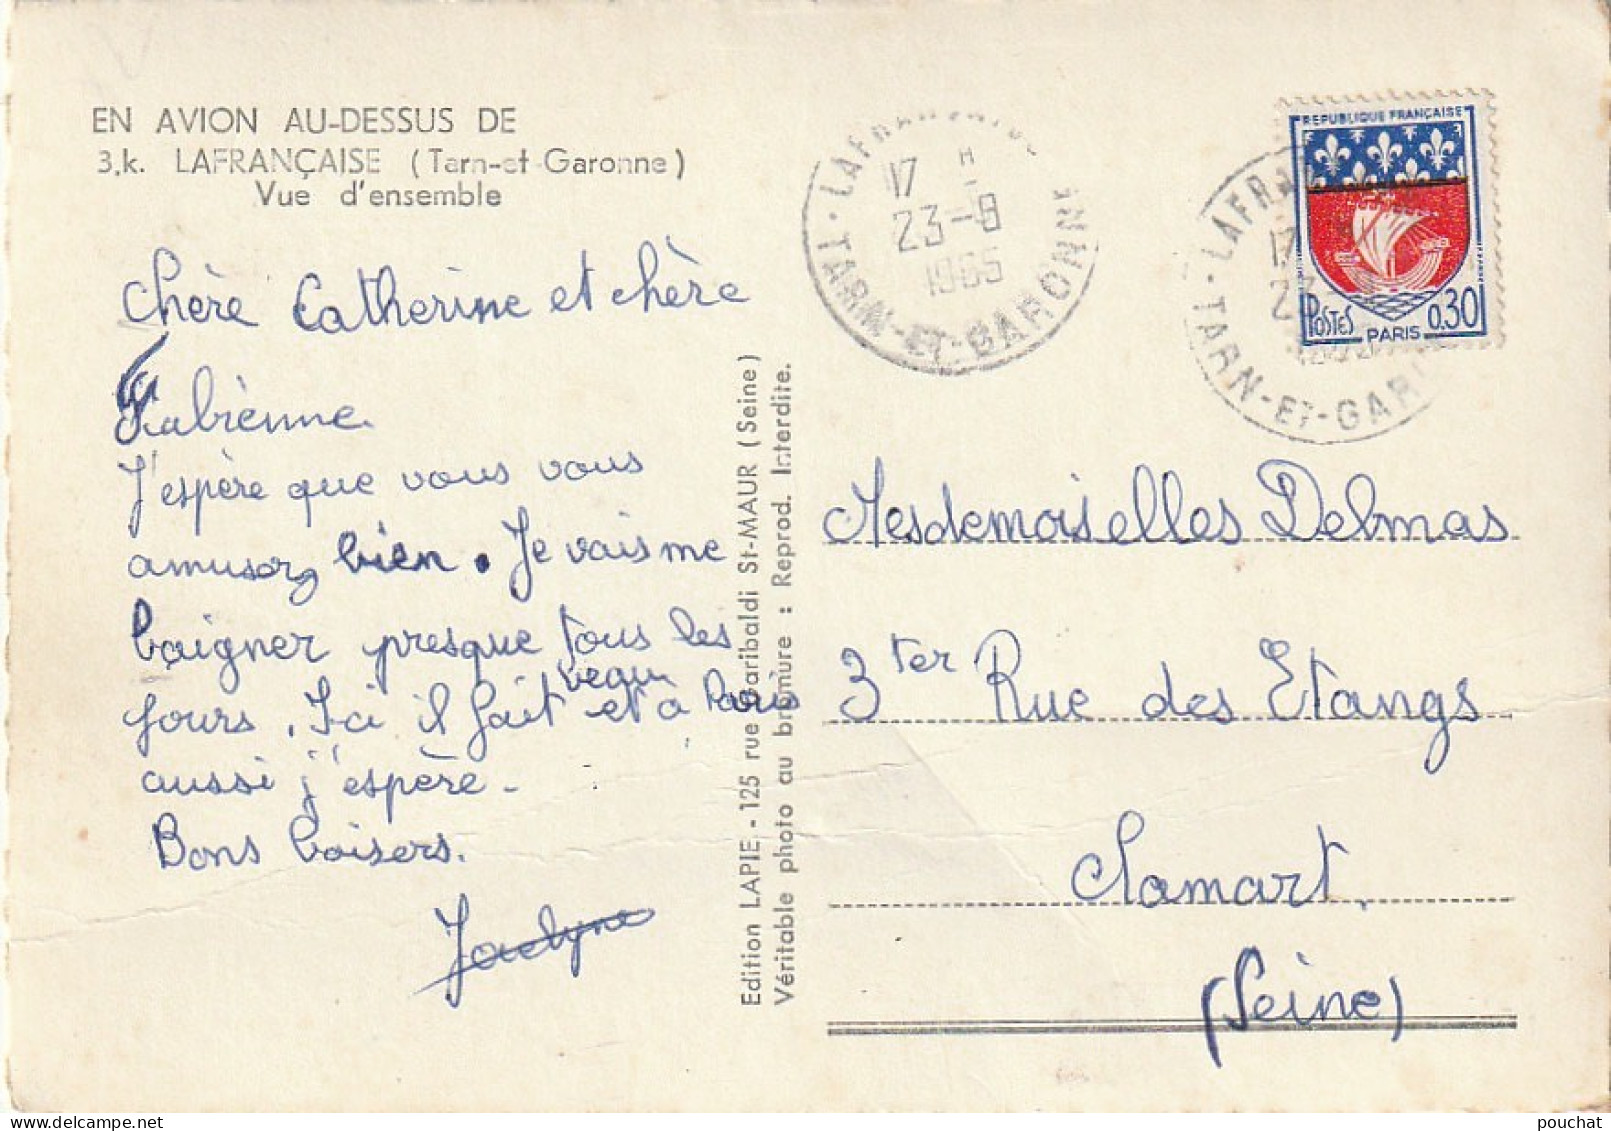 EN AVION AU-DESSUS DE
3.k. LAFRANÇAISE (Tarn-et-Garonne)
Vue d'ensemble
Chère Catherine et chère
Fabienne.
J'espère que vous vous
amusez bien. Je vais me
baigner presque tous les
jours. Ici il fait beau et à Paris
aussi j'espère.
Bons baisers.
Joclyne
Edition LAPIE - 125 rue Garibaldi St-MAUR (Seine)
Véritable photo au bromure : Reprod. Interdite.
LAFRANÇAISE
17 H
23-8
1965
TARN-ET-GARONNE
REPUBLIQUE FRANÇAISE
POSTES
PARIS
0,30
LAFRAN
17
23
TARN-ET-GAR
Mesdemoiselles Delmas
3 ter Rue des Etangs
Clamart.
(Seine)
pouchat